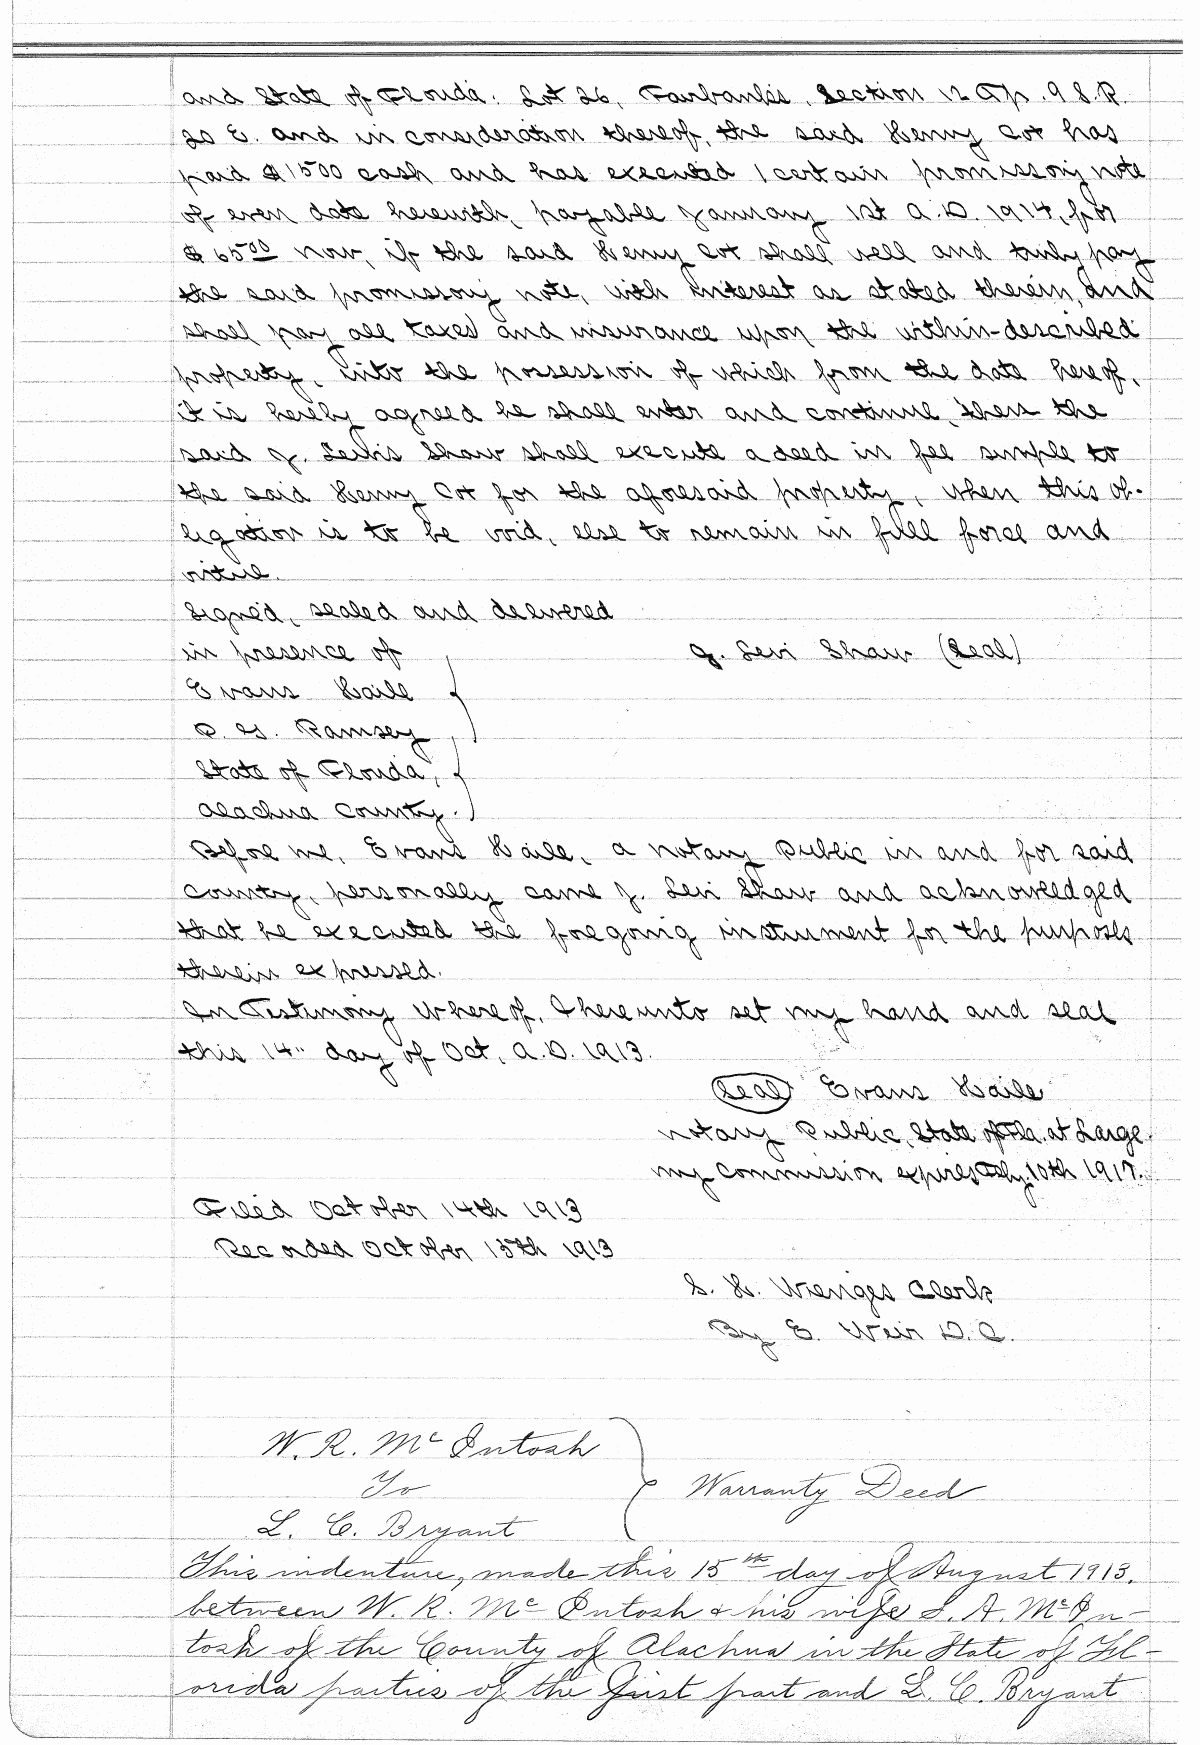 and State of Florida. Lot 26, Fairbanks, Section 12 Tp. 9 S. R.
20 E. and in consideration thereof, the said Henry Cot has
paid $1500 cash and has executed 1 certain promissory note
of even date herewith, payable January 1st A.D. 1914, for
$65.00 Now, if the said Henry Cot shall well and truly pay
the said promissory note, with interest as stated therein, and
shall pay all taxes and insurance upon the within-described
property, into the possession of which from the date hereof,
it is hereby agreed he shall enter and continue, then the
said J. Shaw shall execute a deed in fee simple to
the said Henry Cot for the aforesaid property, when this ob-
ligation is to be void, else to remain in full force and
virtue.
Signed, sealed and delivered
in presence of J. Levi Shaw (Seal)
Evans Haile
Ramsey
State of Florida,
Alachua County.
Before me, Evans Haile, a Notary Public in and for said
County, personally came J. Levi Shaw and acknowledged
that he executed the foregoing instrument for the purposes
therein expressed.
In Testimony Whereof, I hereunto set my hand and seal
this 14" day of Oct, A.D. 1913.
(Seal) Evans Haile
Notary Public, State of Fla. at Large
My commission expires 10th 1917.
Filed October 14th 1913
Recorded October 15th 1913
S. H. Wienges Clerk
By E. Weir D.C.
W. R. McIntosh
To
L. C. Bryant
Warranty Deed
This indenture, made this 15th day of August 1913,
between W. R. McIntosh & his wife S. A. McIn-
tosh of the County of Alachua in the State of Fl-
orida parties of the first part and L. C. Bryant